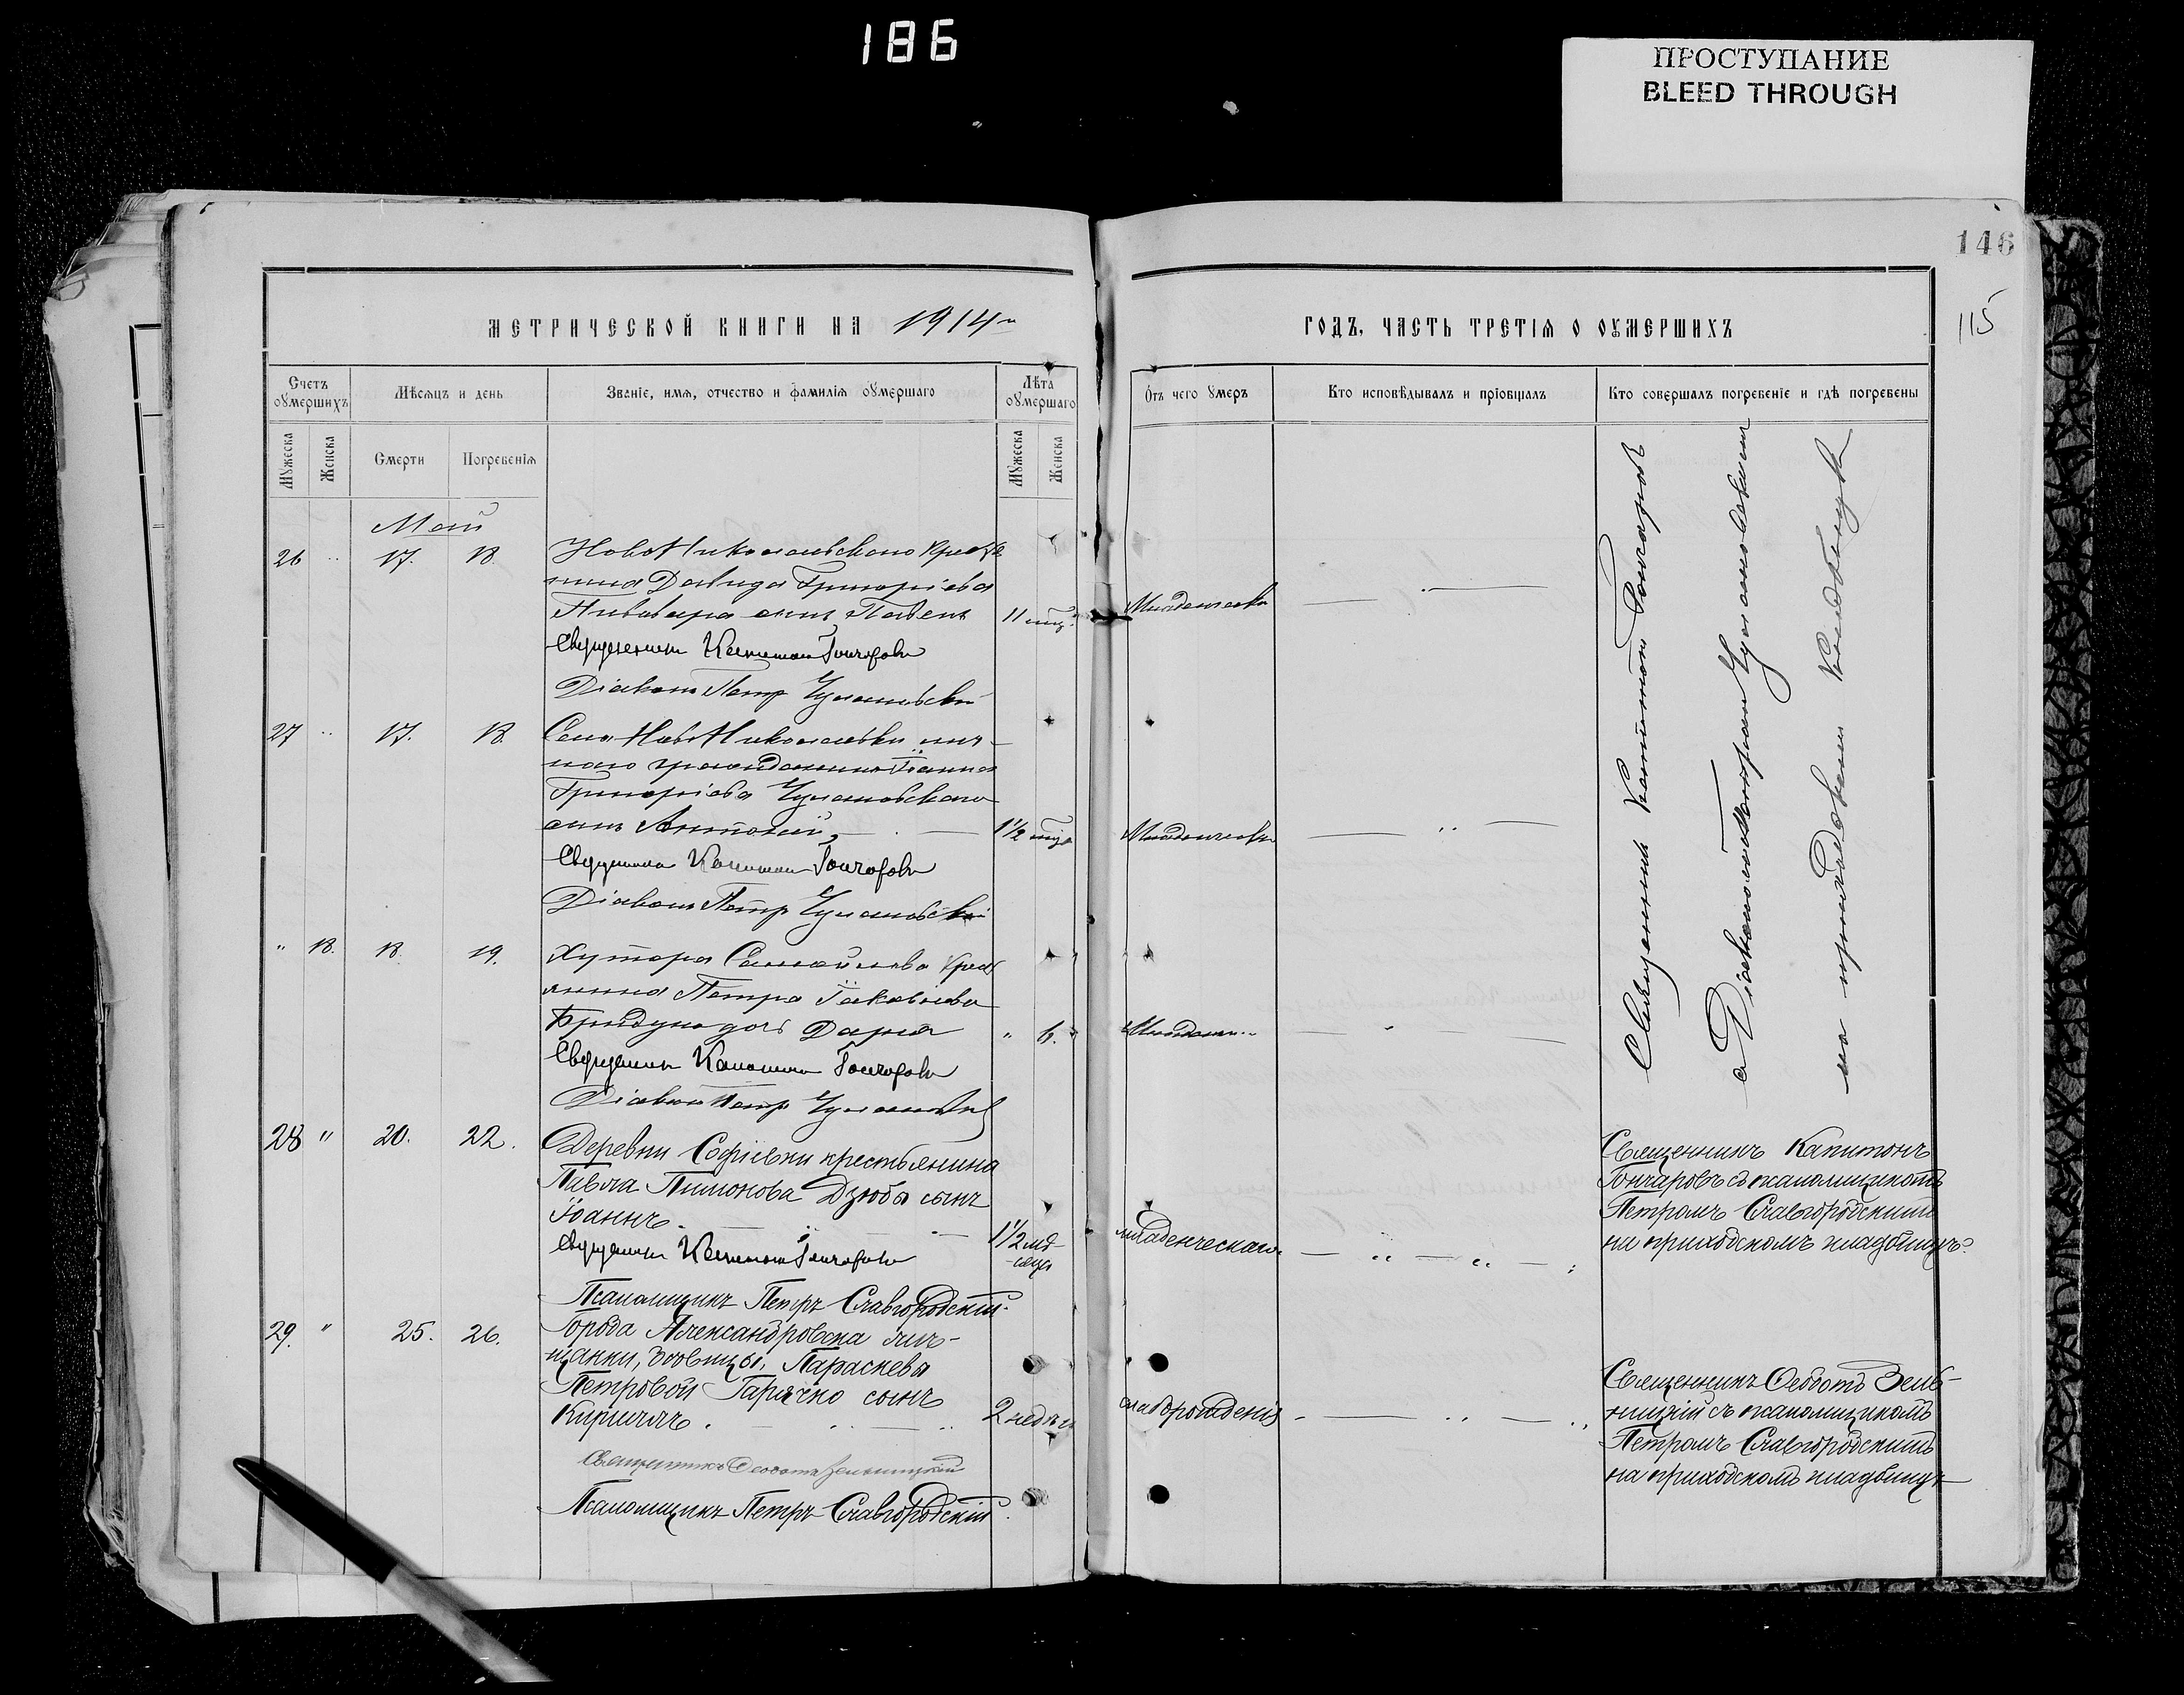 186
ПРОСТУПАНИЕ
BLEED THROUGH
146
115
МЕТРИЧЕСКОЙ КНИГИ НА 1914
ГОДЪ, ЧАСТЬ ТРЕТІЯ О ОУМЕРШИХЪ
Счетъ оумершихъ
Мѣсяцъ и день
Званіе, имя, отчество и фамилія оумершаго
Лѣта оумершаго
Отъ чего умеръ
Кто исповѣдывалъ и пріобщалъ
Кто совершалъ погребеніе и гдѣ погребены
Мужеска
Женска
Смерти
Погребенія
Мужеска
Женска
Май
26 " 17. 18.
Ново Николаевскаго
Давида Григоріева
Пивовара сынъ Павелъ
11
Священникъ Капитонъ Гончаровъ
Діаконъ Петръ Чулановскій
27 " 17. 18.
Села Ново Николаевки лич-
наго гражданина Іоанна
Григоріева Чулановскаго
сынъ Антоній
1½
Священникъ Капитонъ Гончаровъ
Діаконъ Петръ Чулановскій
" 18. 18. 19.
Хутора Самойлова крест
янина Петра Іаковлева
дочь Дарія
" 6.
Священникъ Капитонъ Гончаровъ
Діаконъ Петръ Чулановскій
Священникъ Капитонъ Гончаровъ
съ Діакономъ Петромъ Чулановскимъ
на приходскомъ кладбищѣ
28 " 20. 22.
Деревни Софіевки крестьянина
Павла Пимонова Дзюбы сынъ
Іоаннъ.
1½ мѣ-
сяца
младенческая
Священникъ Капитонъ Гончаровъ
Псаломщикъ Петръ Славгородскій.
Священникъ Капитонъ
Гончаровъ съ псаломщикомъ
Петромъ Славгородскимъ
на приходскомъ кладбищѣ
29. " 25. 26.
Города Александровска мѣ-
щанки, вдовицы, Параскевы
Петровой Гарячко сынъ
Кириллъ.
2 недѣли
слаборожденія
Священникъ Феодотъ Зель-
ницкій съ псаломщикомъ
Петромъ Славгородскимъ
на приходскомъ кладбищѣ
Священникъ Феодотъ Зельницкій
Псаломщикъ Петръ Славгородскій.